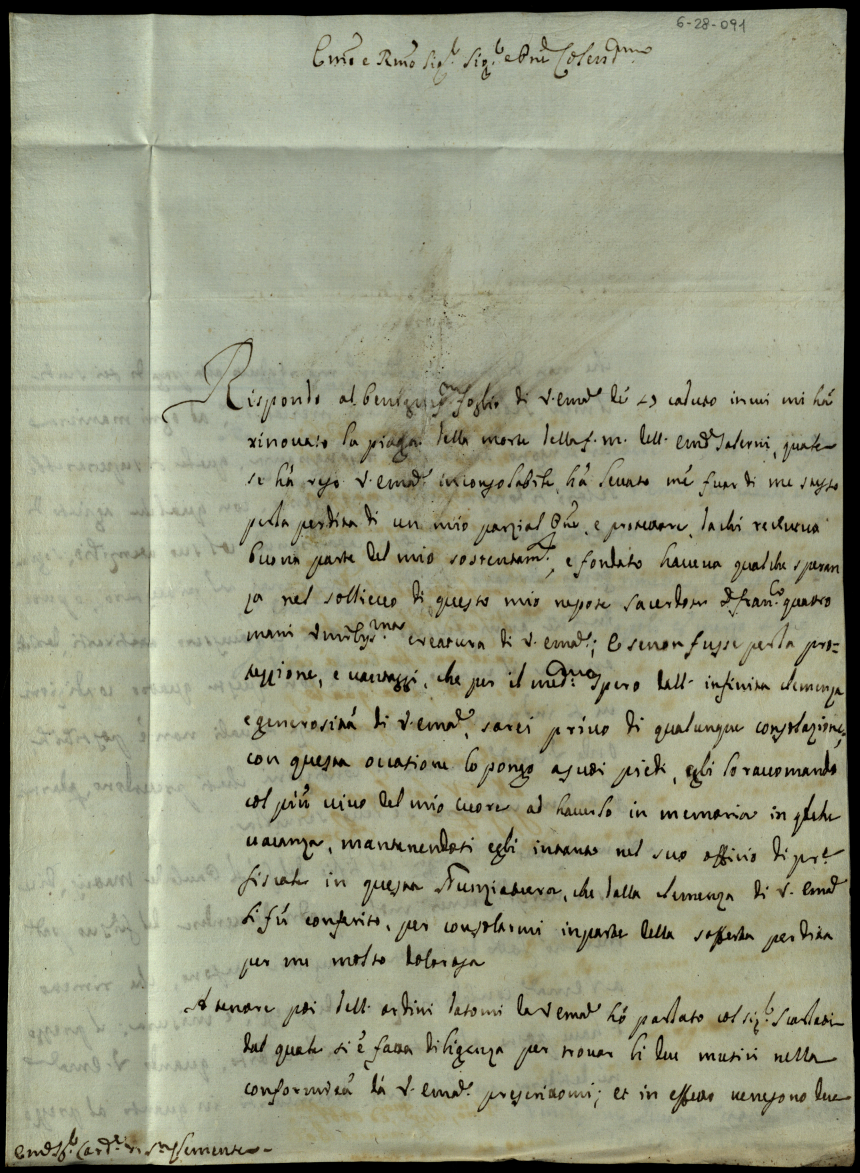 6-28-091
Emo e Rmo Sig.r Sig.r e Pne Colendmo
Rispondo al benigmo foglio di V. Emza de 29 caduto in cui mi há
rinovato la piaga della morte della f. m. dell' Emo Salerni, quale
se há reso V. Emza inconsolabile, há levato mé fuor di me stesso
per la perdita di un mio parzial Pne, e protettore, da chi riceveva
buona parte del mio sostentamto, e fondato haveva qualche speran
za nel sollievo di questo mio nepote Sacerdote D. Franco quattro
mani umiliss.ma creatura di V. Emza; e se non fusse per la pro=
tezzione, e vantaggi, che per il medmo spero dall' infinita clemenza
e generositá di V. Emza, sarei privo di qualunque consolazione,
con questa occasione lo pongo a suoi piedi, e gli lo raccomando
col più vivo del mio cuore ad haverlo in memoria in qlche
vacanza, mantenendosi egli intanto nel suo officio di
fiscale in questa Nunziatura, che dalla clemenza di V. Emza
li fú conferito, per consolarmi in parte della sofferta perdita
per me molto dolorosa
A tenore poi dell' ordini datomi da V. Emza hó parlato col Sig.r
dal quale si é fatta diligenza per trovar li due musici nella
conformitá da V. Emza prescrivomi; et in effetto vengono due
Emo Sr. Card.le di S. Clemente